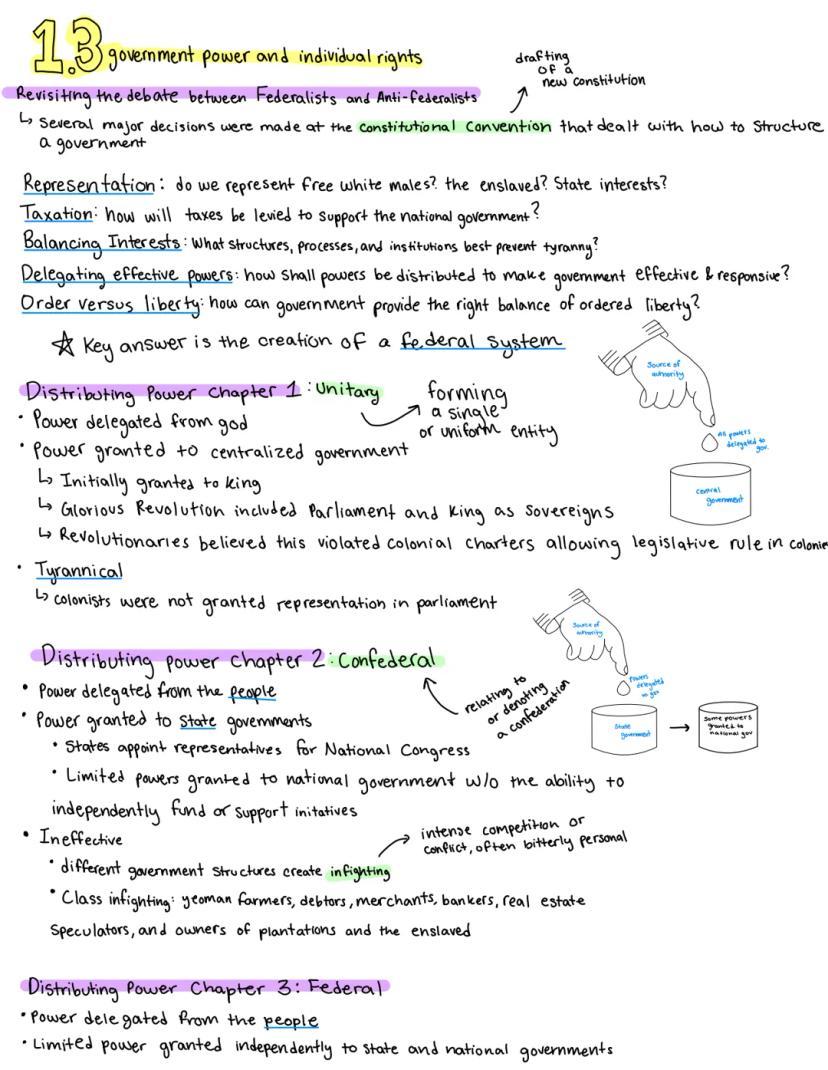 1.3 government power and individual rights
drafting
of a
new constitution
Revisiting the debate between Federalists and Anti-federalists
↳ Several major decisions were made at the constitutional convention that dealt with how to structure
a government
Representation: do we represent free white males? the enslaved? State interests?
Taxation: how will taxes be levied to support the national government?
Balancing Interests: What structures, processes, and institutions best prevent tyranny?
Delegating effective powers: how shall powers be distributed to make government effective & responsive?
Order versus liberty: how can government provide the right balance of ordered liberty?
☆ Key answer is the creation of a federal system
Source of
authority
All powers
delegated to
gov.
central
government
Distributing Power Chapter 1: Unitary
forming
a single
or uniform entity
• Power delegated from god
• Power granted to centralized government
↳ Initially granted to king
↳ Glorious Revolution included Parliament and King as Sovereigns
↳ Revolutionaries believed this violated colonial charters allowing legislative rule in colonie
• Tyrannical
↳ colonists were not granted representation in parliament
Source of
authority
Powers
delegated
to gov
State
government
→
some powers
granted to
national gov
Distributing power chapter 2: Confederal
relating to
or denoting
a confederation
• Power delegated from the people
• Power granted to State governments
• States appoint representatives for National Congress
• Limited powers granted to national government w/o the ability to
independently fund or support initatives
• Ineffective
intense competition or
conflict, often bitterly personal
• different government structures create infighting
• Class infighting: yeoman farmers, debtors, merchants, bankers, real estate
Speculators, and owners of plantations and the enslaved
Distributing Power Chapter 3: Federal
• Power delegated from the people
• Limited power granted independently to state and national governments